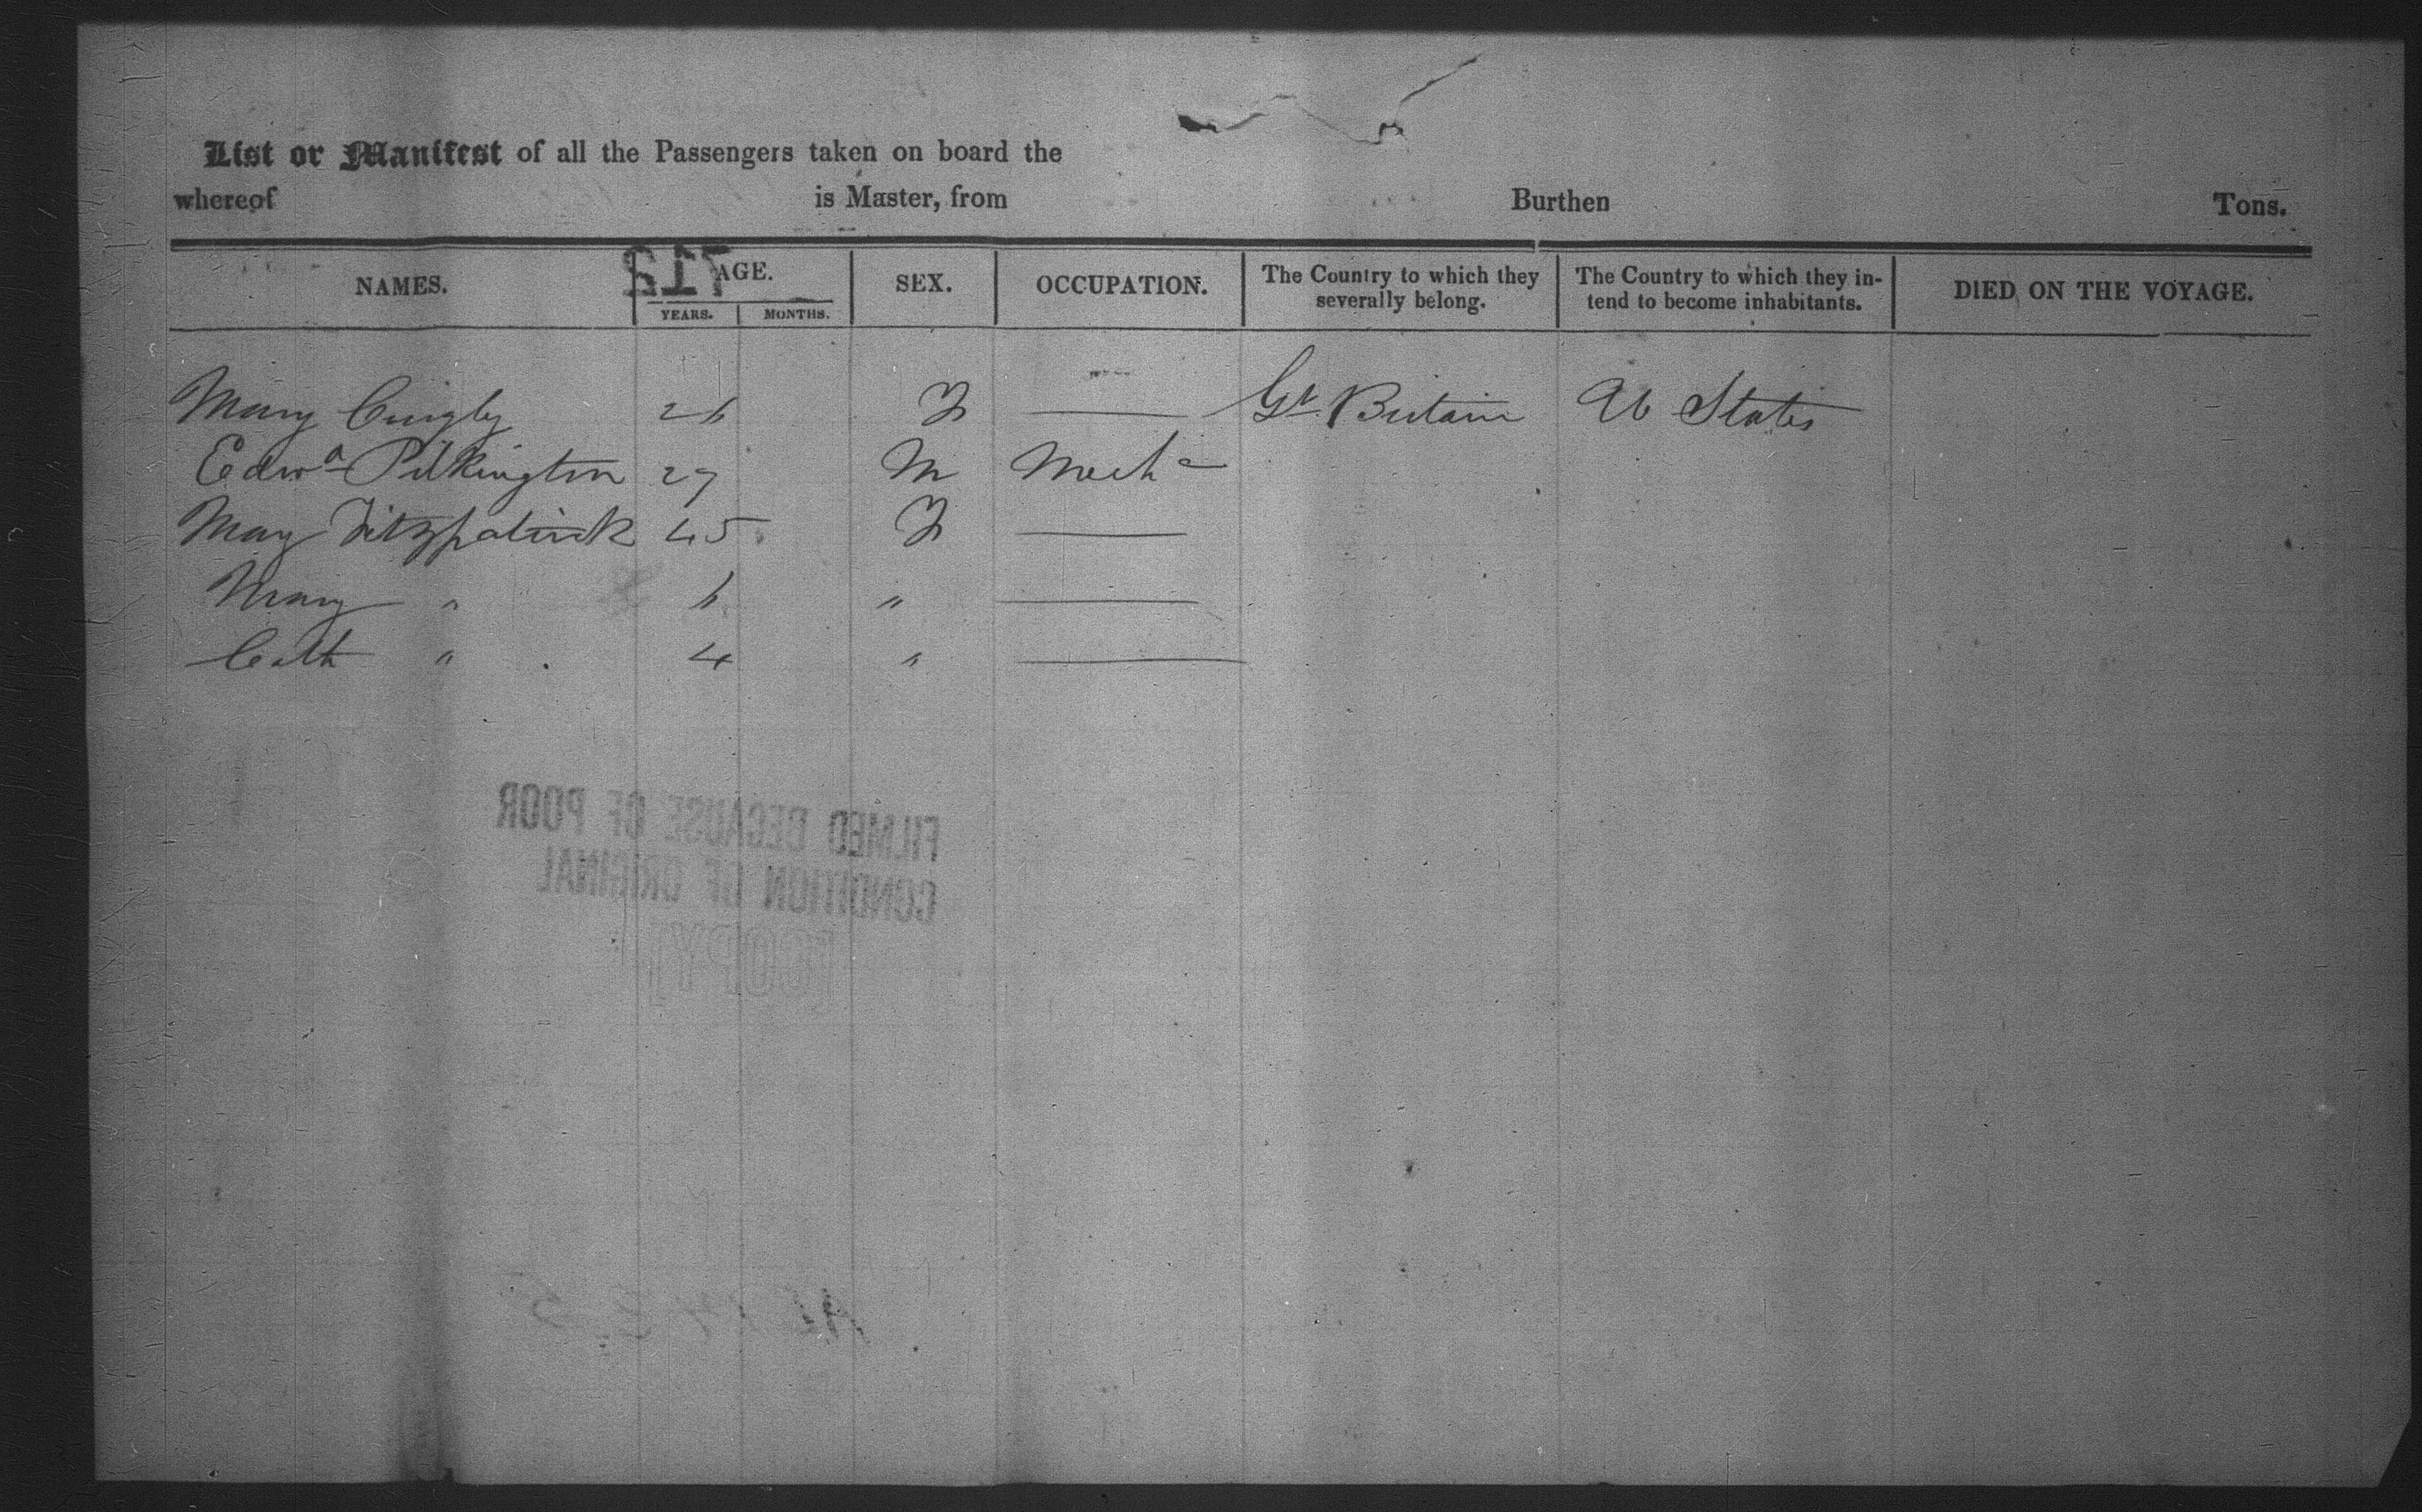 List or Manifest of all the Passengers taken on board the
whereof is Master, from Burthen Tons.
NAMES. AGE. SEX. OCCUPATION. The Country to which they severally belong. The Country to which they in- tend to become inhabitants. DIED ON THE VOYAGE.
YEARS. MONTHS.
Mary 26 F — Gt. Britain U States
Edwd Pilkington 27 M Mechc
Mary Fitzpatrick 45 F —
Mary " 6 " —
Cath " 4 " —
FILMED BECAUSE OF POOR
CONDITION OF ORIGINAL
[COPY]